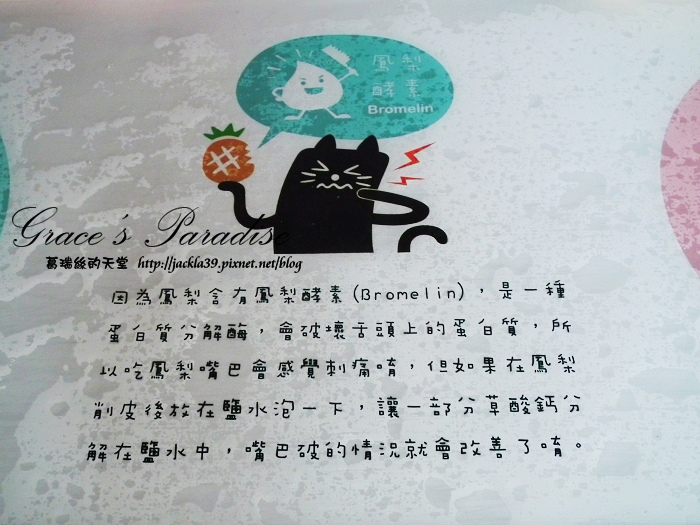 鳳梨
酵素
Bromelin
Grace's Paradise
葛瑞絲的天堂 http://jackla39.pixnet.net/blog
因為鳳梨含有鳳梨酵素(Bromelin)，是一種
蛋白質分解酶，會破壞舌頭上的蛋白質，所
以吃鳳梨嘴巴會感覺刺痛唷，但如果在鳳梨
削皮後放在鹽水泡一下，讓一部分草酸鈣分
解在鹽水中，嘴巴破的情況就會改善了唷。